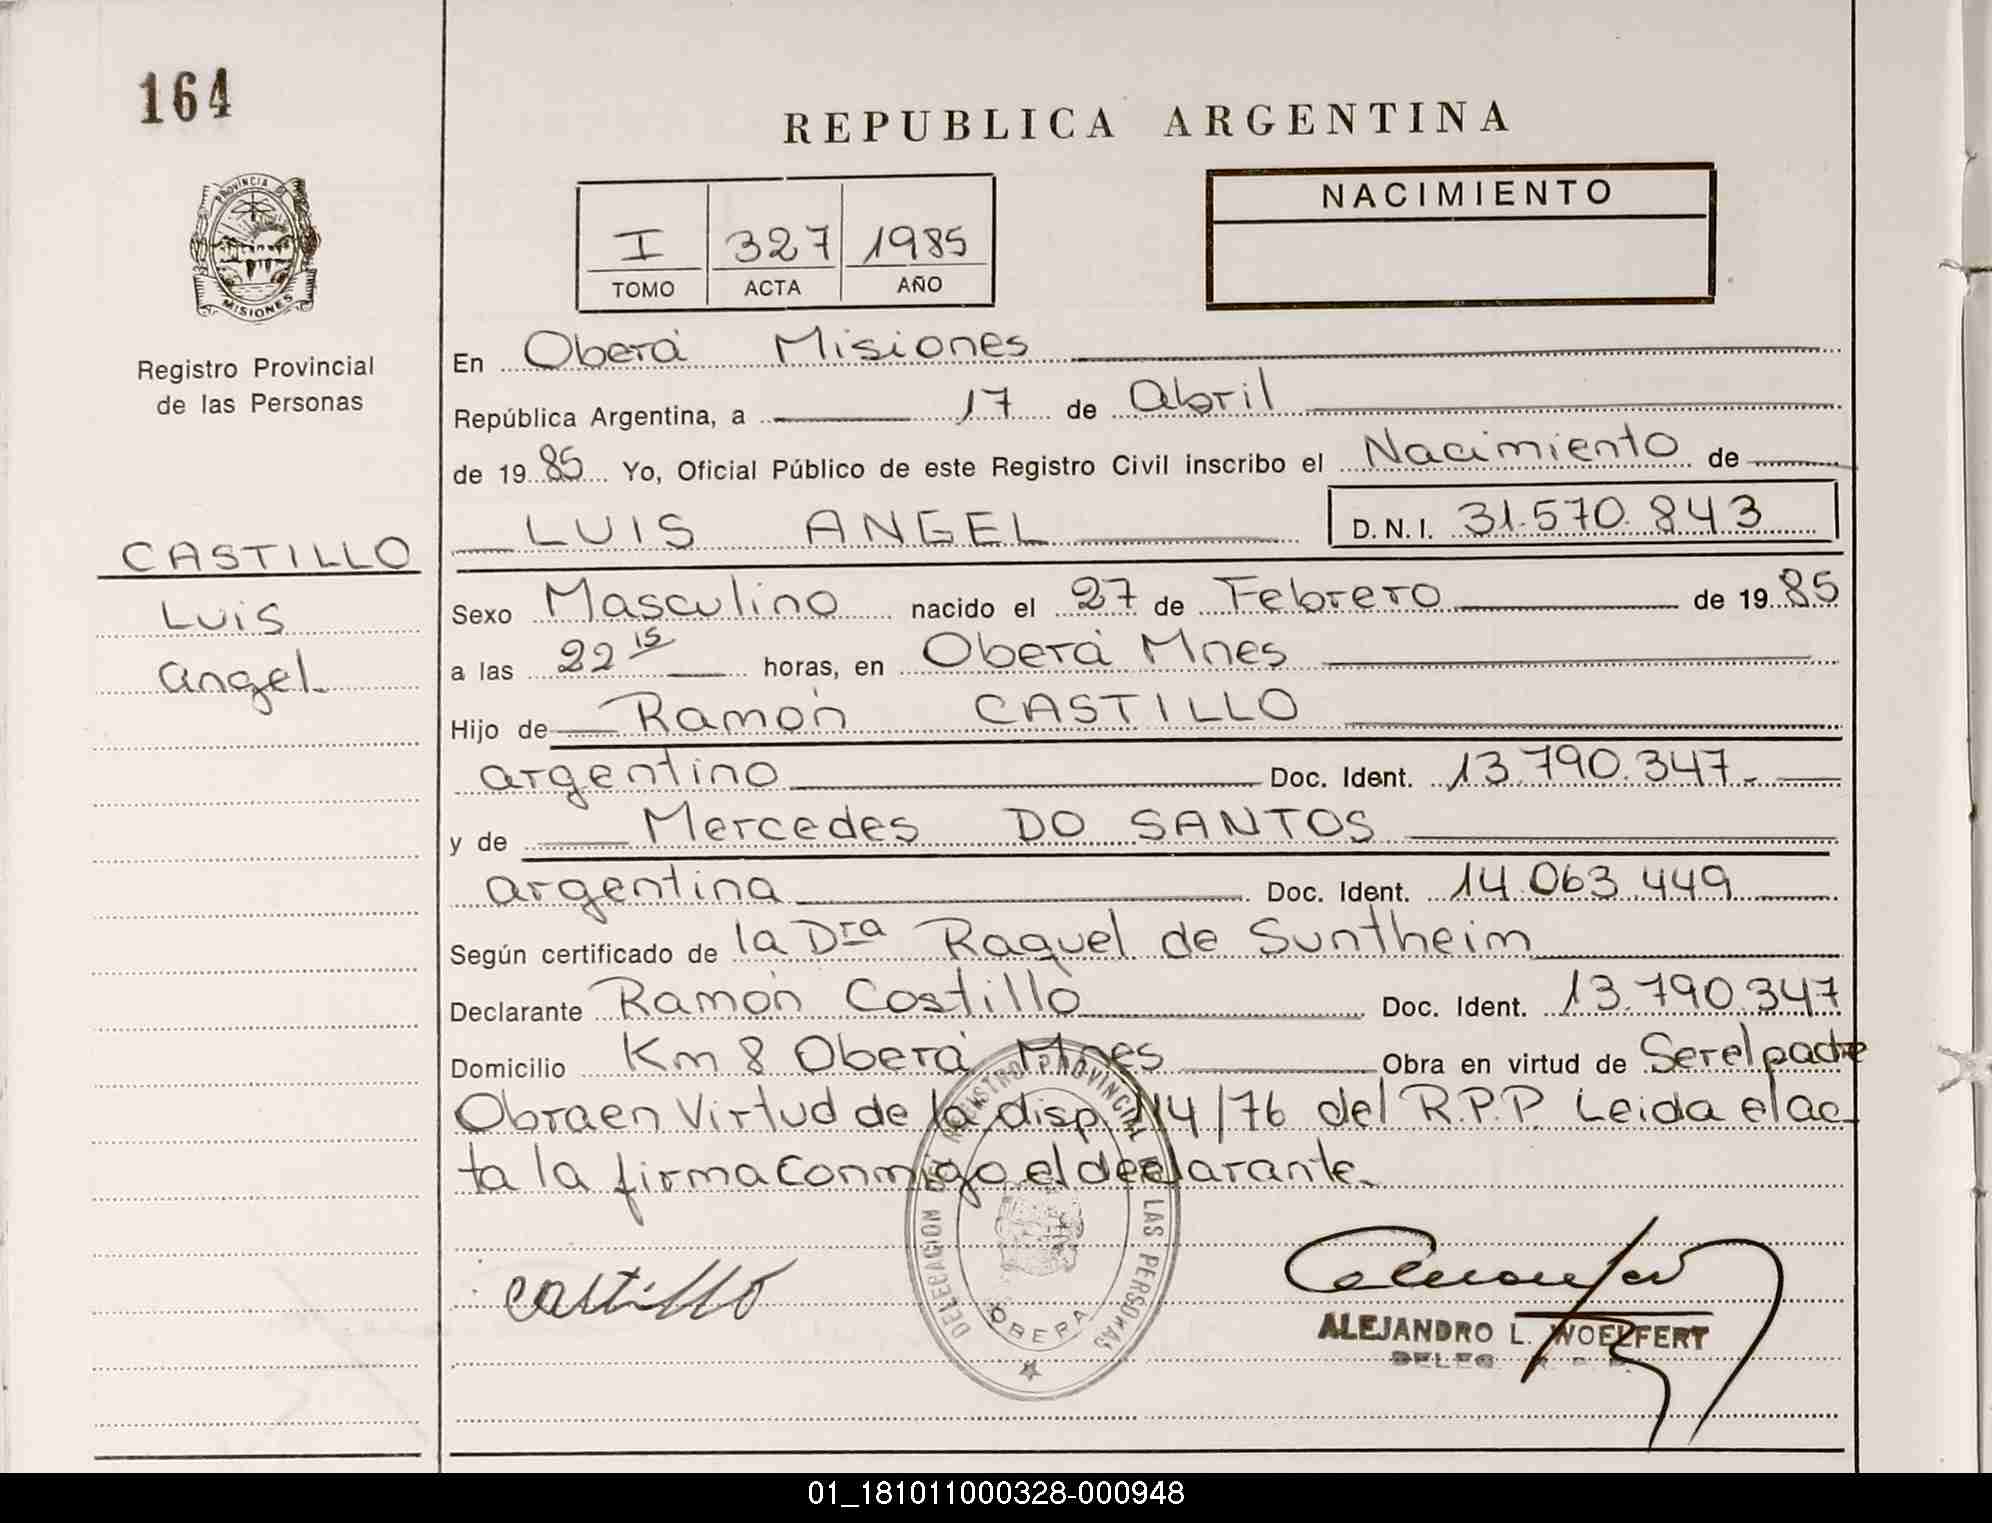 164
REPUBLICA ARGENTINA
PROVINCIA DE
MISIONES
NACIMIENTO
I 327 1985
TOMO ACTA AÑO
Registro Provincial
de las Personas
CASTILLO
Luis
Angel
En Oberá Misiones
República Argentina, a 17 de Abril
de 1985 Yo, Oficial Público de este Registro Civil inscribo el Nacimiento de
LUIS ANGEL D.N.I. 31.570.843
Sexo Masculino nacido el 27 de Febrero de 1985
a las 22 15 horas, en Oberá Mnes
Hijo de Ramón CASTILLO
argentino Doc. Ident. 13.790.347.-
y de Mercedes DO SANTOS
argentina Doc. Ident. 14.063.449
Según certificado de la Dra Raquel de Suntheim
Declarante Ramón Costillo Doc. Ident. 13.790.347
Domicilio Km 8 Oberá Mnes Obra en virtud de Ser el padre
Obra en Virtud de la disp. 114/76 del R.P.P. Leida el ac-
ta la firma conmigo el declarante.
DELEGACION DEL REGISTRO PROVINCIAL DE LAS PERSONAS
OBERA
castillo
ALEJANDRO L. WOELFERT
01_181011000328-000948